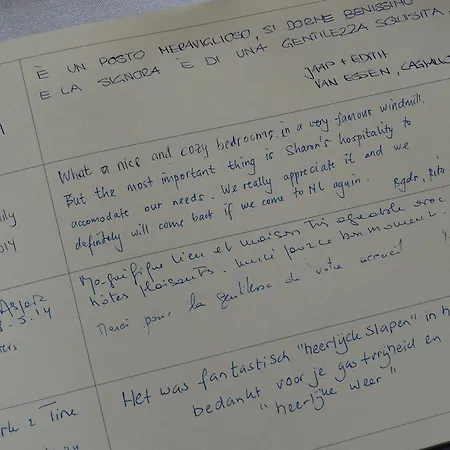 È UN POSTO MERAVIGLIOSO, SI DORME BENISSIMO
E LA SIGNORA È DI UNA GENTILEZZA SQUISITA,
JAAP + EDITH
VAN ESSEN, CAGLI
What a nice and cozy bedrooms in a very famous windmill.
But the most important thing is Sharon's hospitality to
accomodate our needs. We really appreciate it and we
definitely will come back if we come to NL again.
Rgds,
Magnifique lieu et maison très agréable avec
hôtes plaisants. merci pour ce bon moment.
Merci pour la gentillesse de votre accueil
5.14
Het was fantastisch "heerlijck slapen" in h
bedankt voor je gastvrijheid en
"heerlijke weer"
2 Tine